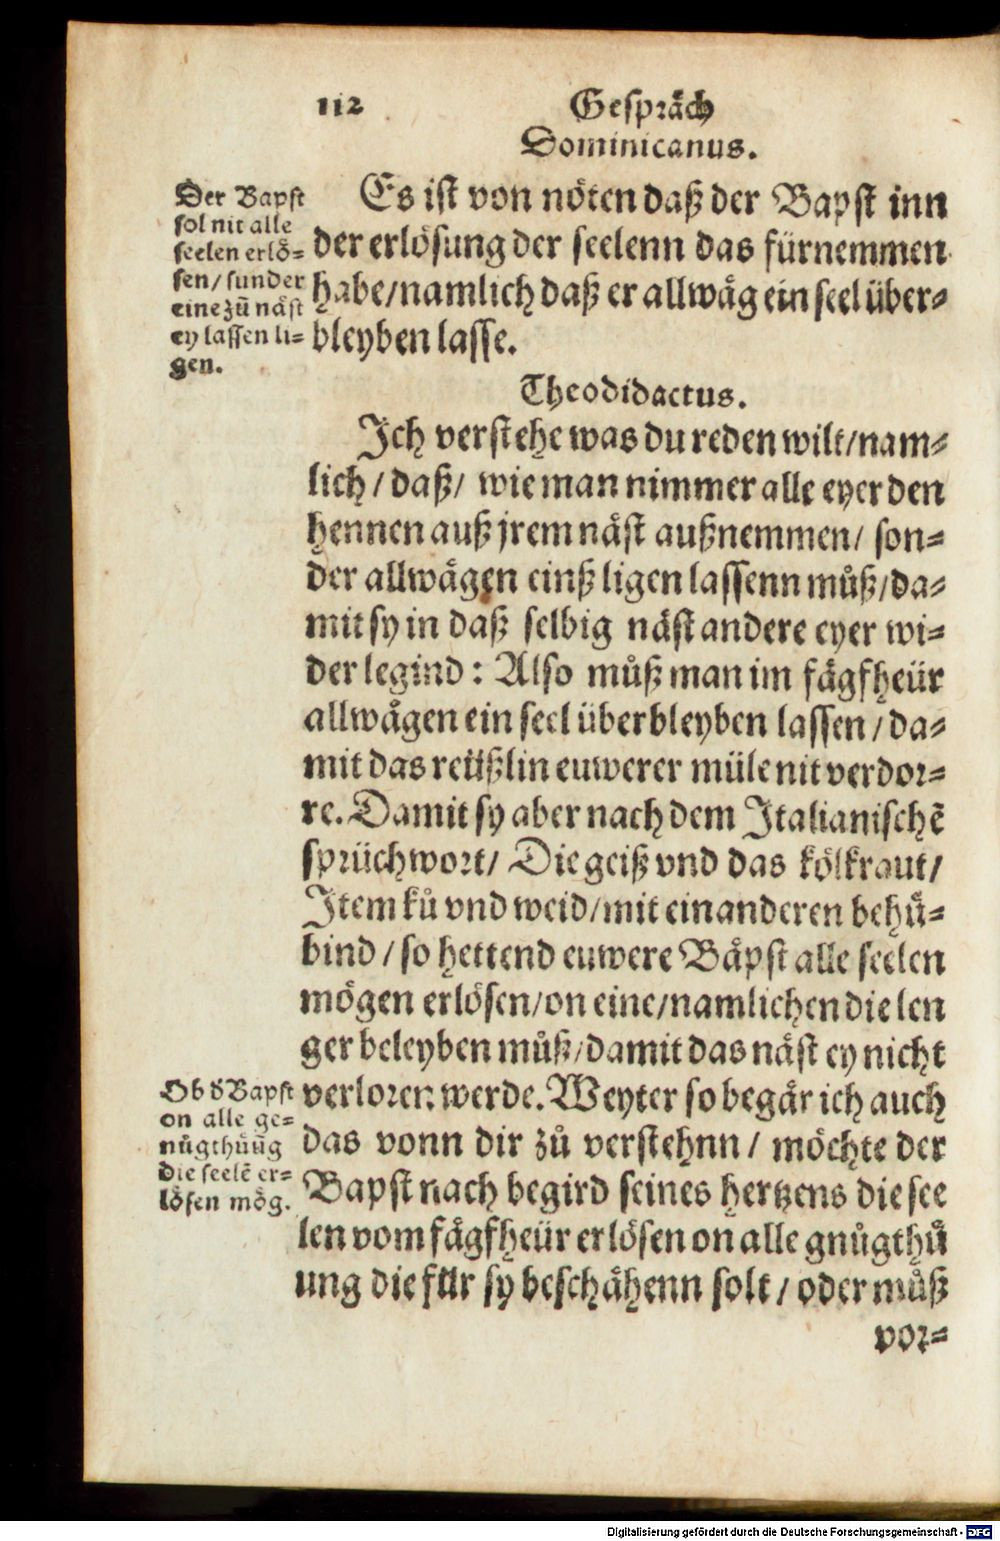 112 Gespräch
Dominicanus.
Der Bapst
sol nit alle
seelen erlö-
sen/ sunder
eine zů näst
ey lassen li-
gen.
Es ist von nöten daß der Bapst inn
der erlösung der seelenn das fürnemmen
habe/namlich daß er allwäg ein seel über-
bleyben lasse.
Theodidactus.
Jch verstehe was du reden wilt/nam-
lich/ daß/ wie man nimmer alle eyer den
hennen auß jrem näst außnemmen/ son-
der allwägen einß ligen lassenn můß/da-
mit sy in daß selbig näst andere eyer wi-
der legind: Also můß man im fägfheür
allwägen ein seel überbleyben lassen/da-
mit das reüßlin euwerer müle nit verdor-
re. Damit sy aber nach dem Jtalianischẽ
sprüchwort/ Die geiß vnd das kölkraut/
Jtem ků vnd weid/mit einanderen behü-
bind/so hettend euwere Bäpst alle seelen
mögen erlösen/on eine/namlichen die len
ger beleyben můß/damit das näst ey nicht
verloren werde. Weyter so begär ich auch
das vonn dir zů verstehnn/ möchte der
Bapst nach begird seines hertzens die see
len vom fägfheür erlösen on alle gnůgthů
ung die für sy beschähenn solt/ oder můß
Ob ð Bapst
on alle ge-
nůgthůũg
die seelẽ er-
lösen mög.
vor-
Digitalisierung gefördert durch die Deutsche Forschungsgemeinschaft - DFG